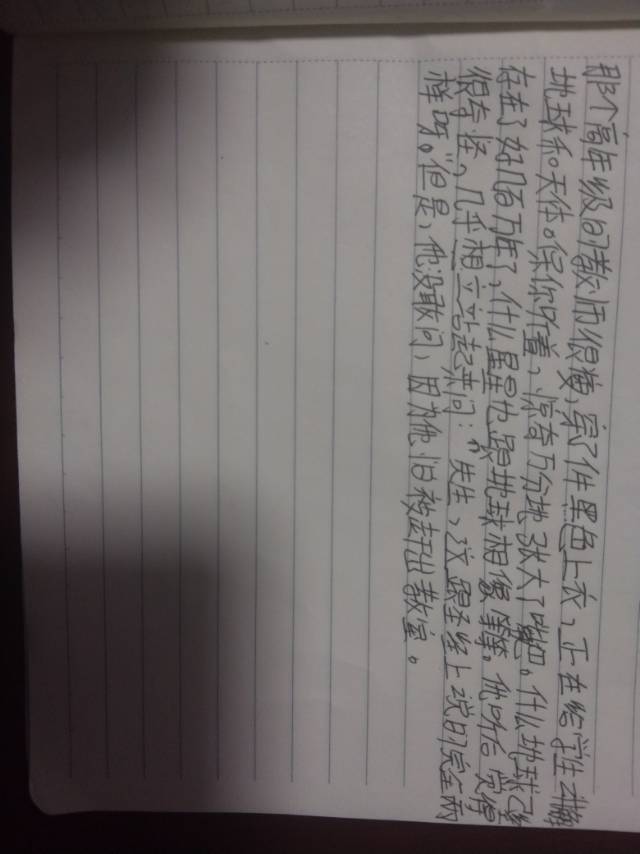 那个高年级的教师很瘦,穿了件黑色上衣,正在给学生讲解
地球和天体。保你听着,惊奇万分地张大了嘴巴。什么地球已经
存在了好几百万年了,什么星星也跟地球相像等等。他听后觉得
很奇怪,几乎想立站起来问:“先生,这跟圣经上说的完全两
样呀。”但是,他没敢问,因为他怕被赶出教室。